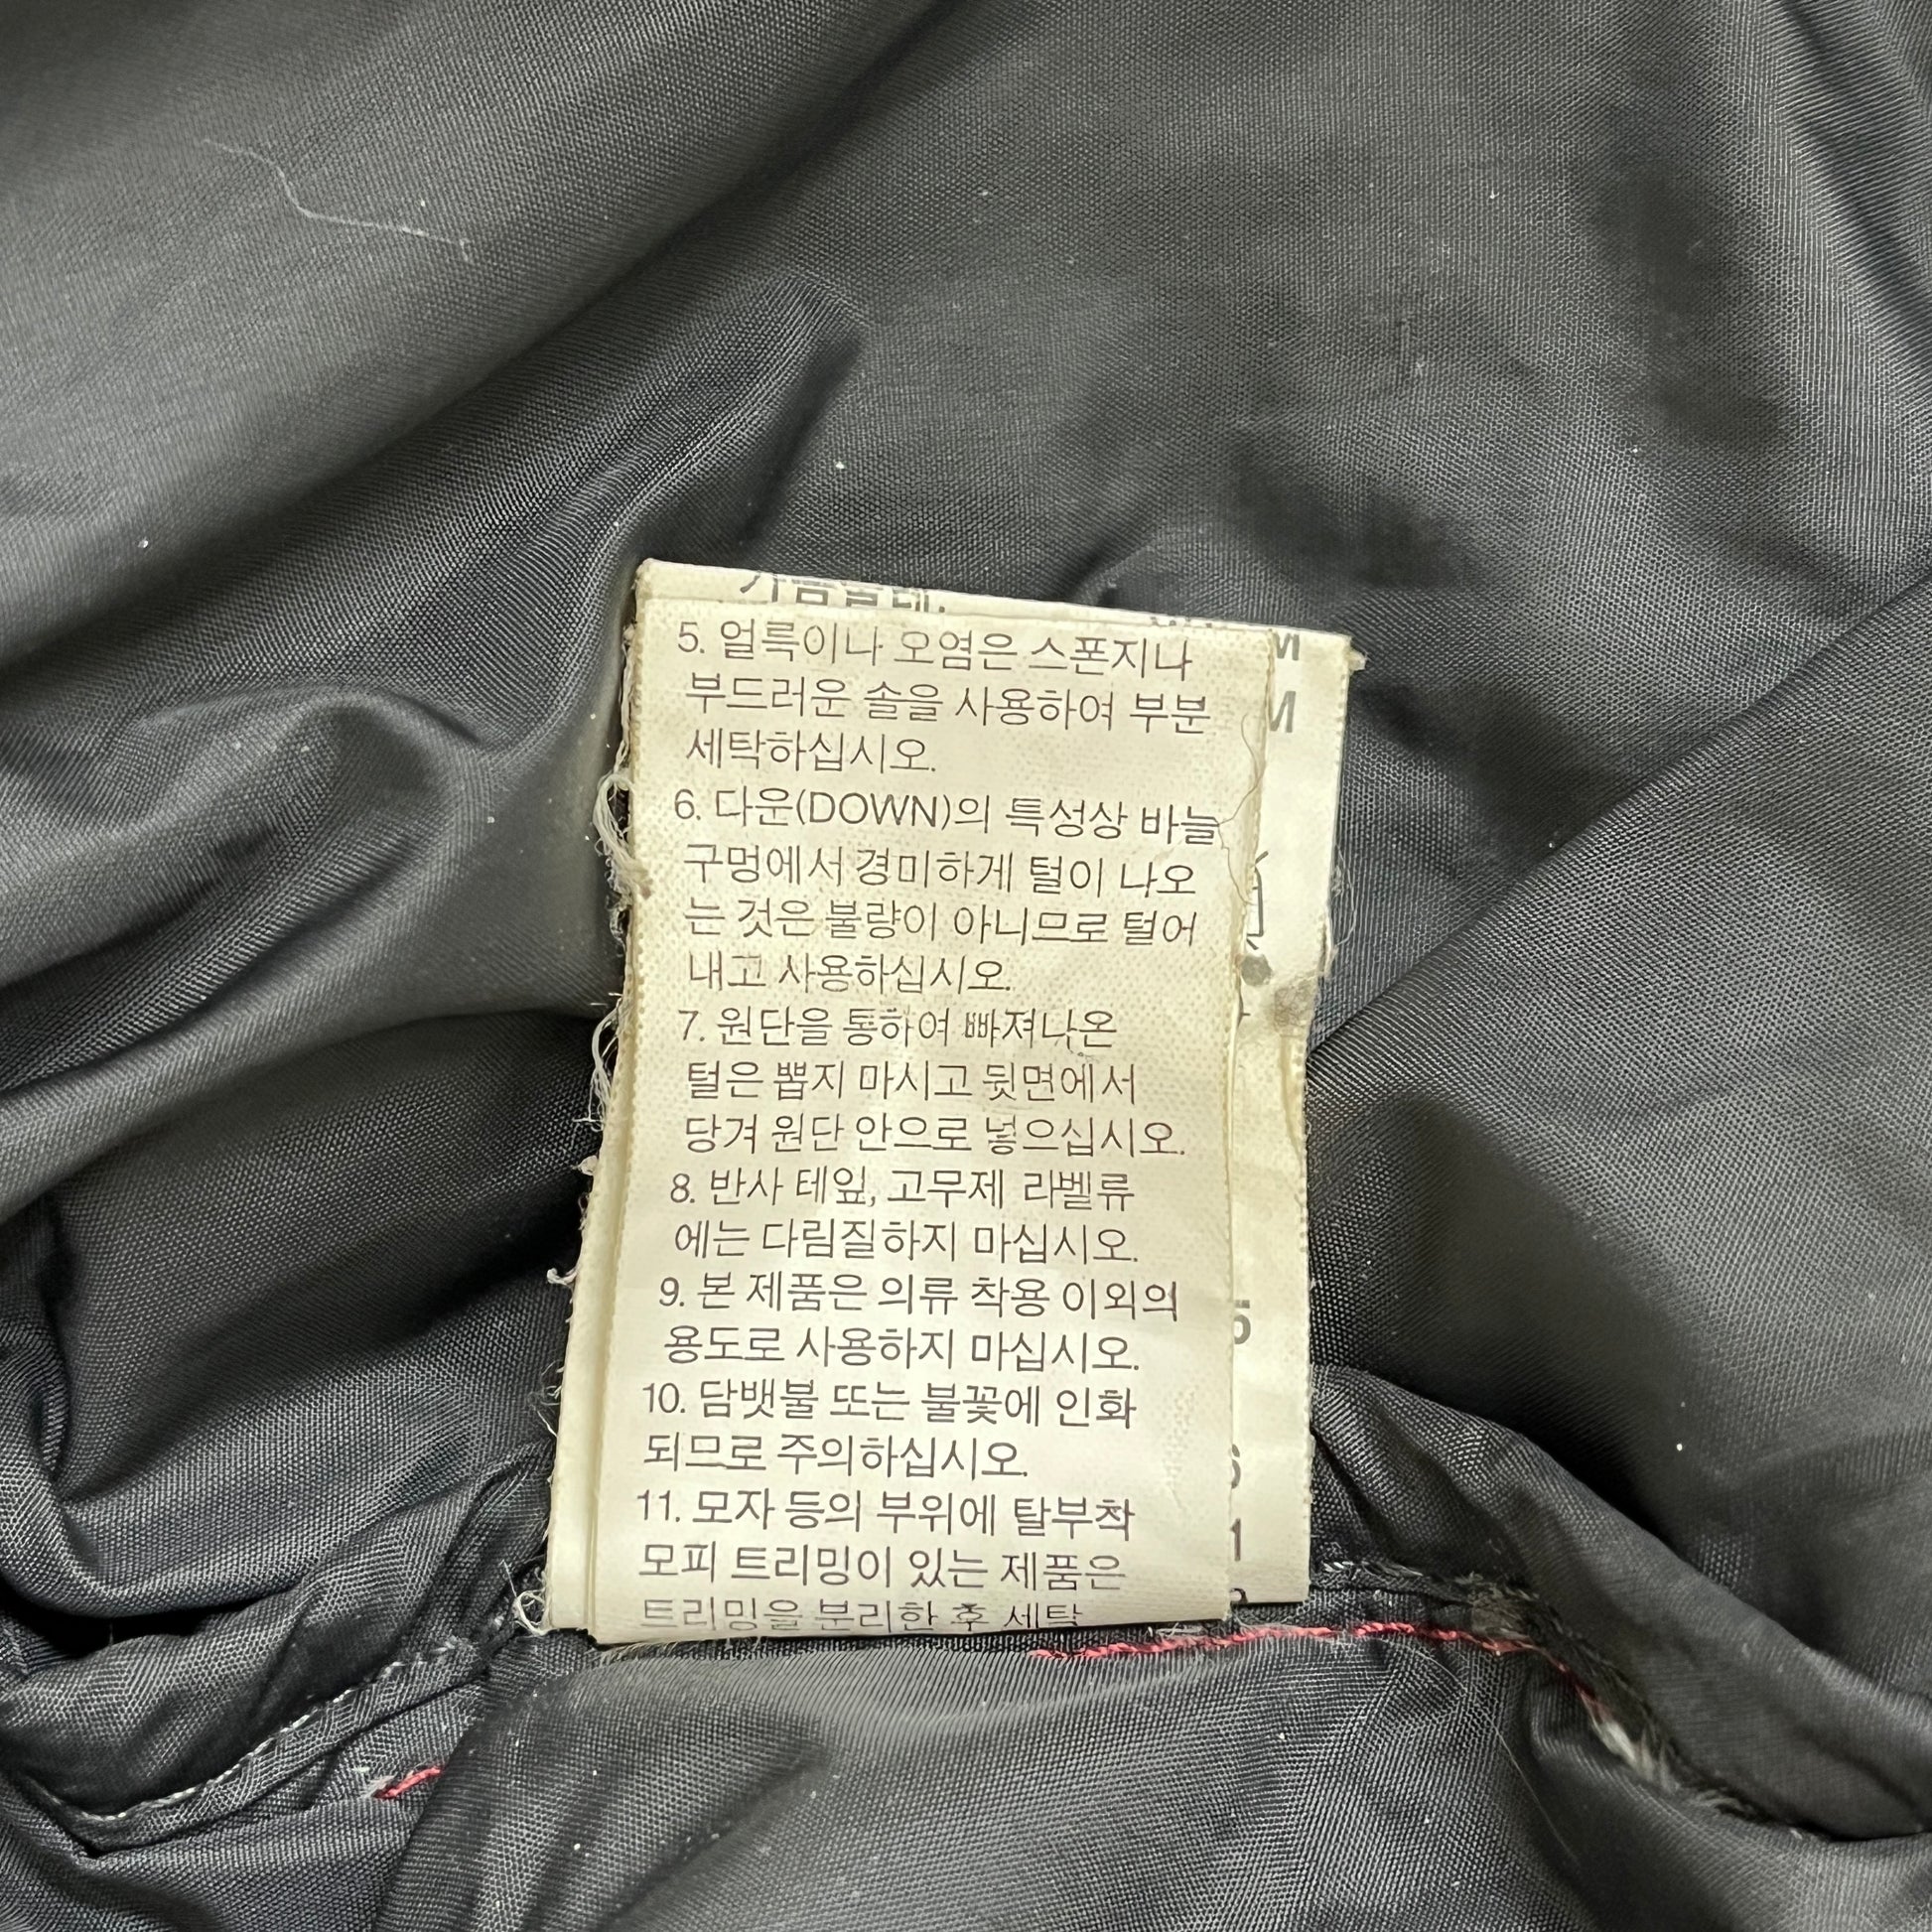 5. 얼룩이나 오염은 스폰지나
부드러운 솔을 사용하여 부분
세탁하십시오.
6. 다운(DOWN)의 특성상 바늘
구멍에서 경미하게 털이 나오
는 것은 불량이 아니므로 털어
내고 사용하십시오.
7. 원단을 통하여 빠져나온
털은 뽑지 마시고 뒷면에서
당겨 원단 안으로 넣으십시오.
8. 반사 테잎, 고무제 라벨류
에는 다림질하지 마십시오.
9. 본 제품은 의류 착용 이외의
용도로 사용하지 마십시오.
10. 담뱃불 또는 불꽃에 인화
되므로 주의하십시오.
11. 모자 등의 부위에 탈부착
모피 트리밍이 있는 제품은
트리밍을 분리한 후 세탁
M
M
5
6
1